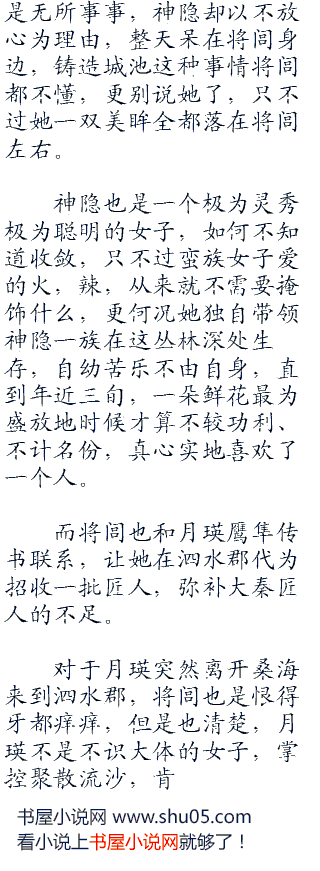 是无所事事，神隐却以不放
心为理由，整天呆在将闾身
边，铸造城池这种事情将闾
都不懂，更别说她了，只不
过她一双美眸全都落在将闾
左右。
神隐也是一个极为灵秀
极为聪明的女子，如何不知
道收敛，只不过蛮族女子爱
的火，辣，从来就不需要掩
饰什么，更何况她独自带领
神隐一族在这丛林深处生
存，自幼苦乐不由自身，直
到年近三旬，一朵鲜花最为
盛放地时候才算不较功利、
不计名份，真心实地喜欢了
一个人。
而将闾也和月瑛鹰隼传
书联系，让她在泗水郡代为
招收一批匠人，弥补大秦匠
人的不足。
对于月瑛突然离开桑海
来到泗水郡，将闾也是恨得
牙都痒痒，但是也清楚，月
瑛不是不识大体的女子，掌
控聚散流沙，肯
书屋小说网 www.shu05.com
看小说上书屋小说网就够了！